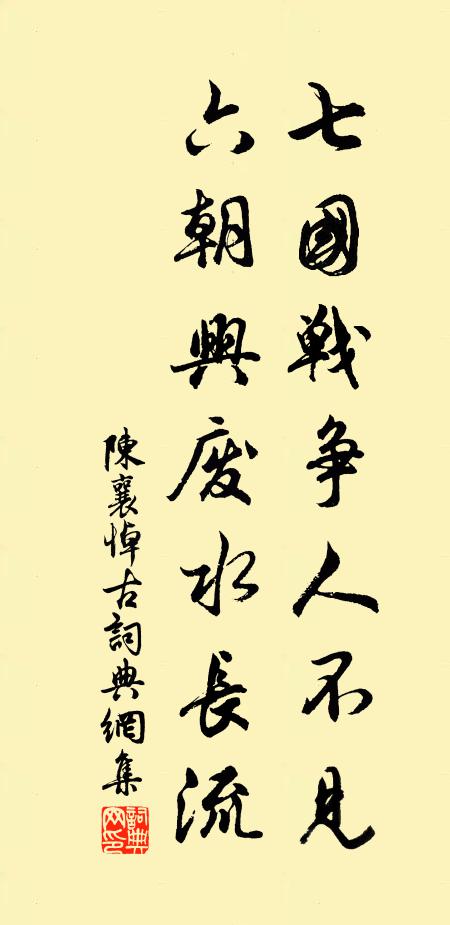 七國戰争人不見
六朝興废水長流
陳襄悼古詞典網集
詞典网印